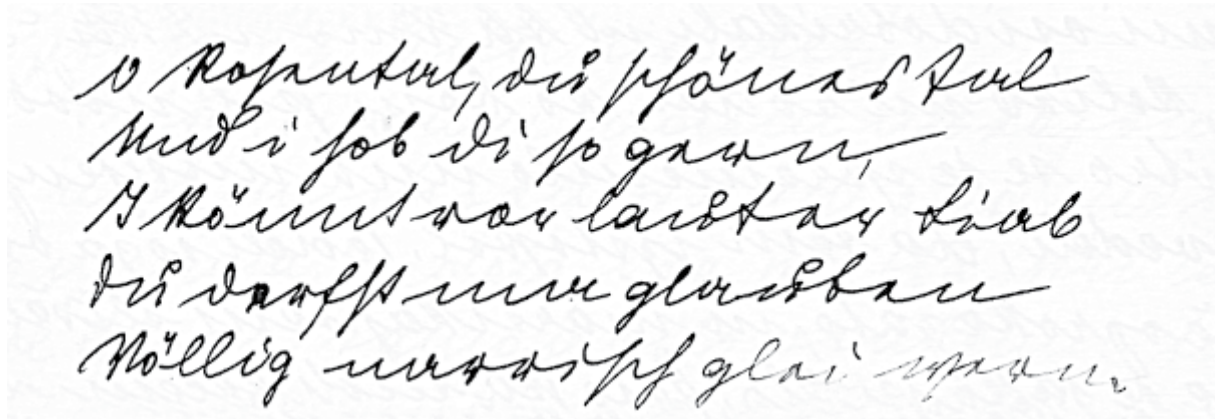 O Rosental, du schönes Tal
Und i hob di so gern,
I könnt vor lauter Liab
Du derfst ma glauben
Völlig narrisch glei wern.